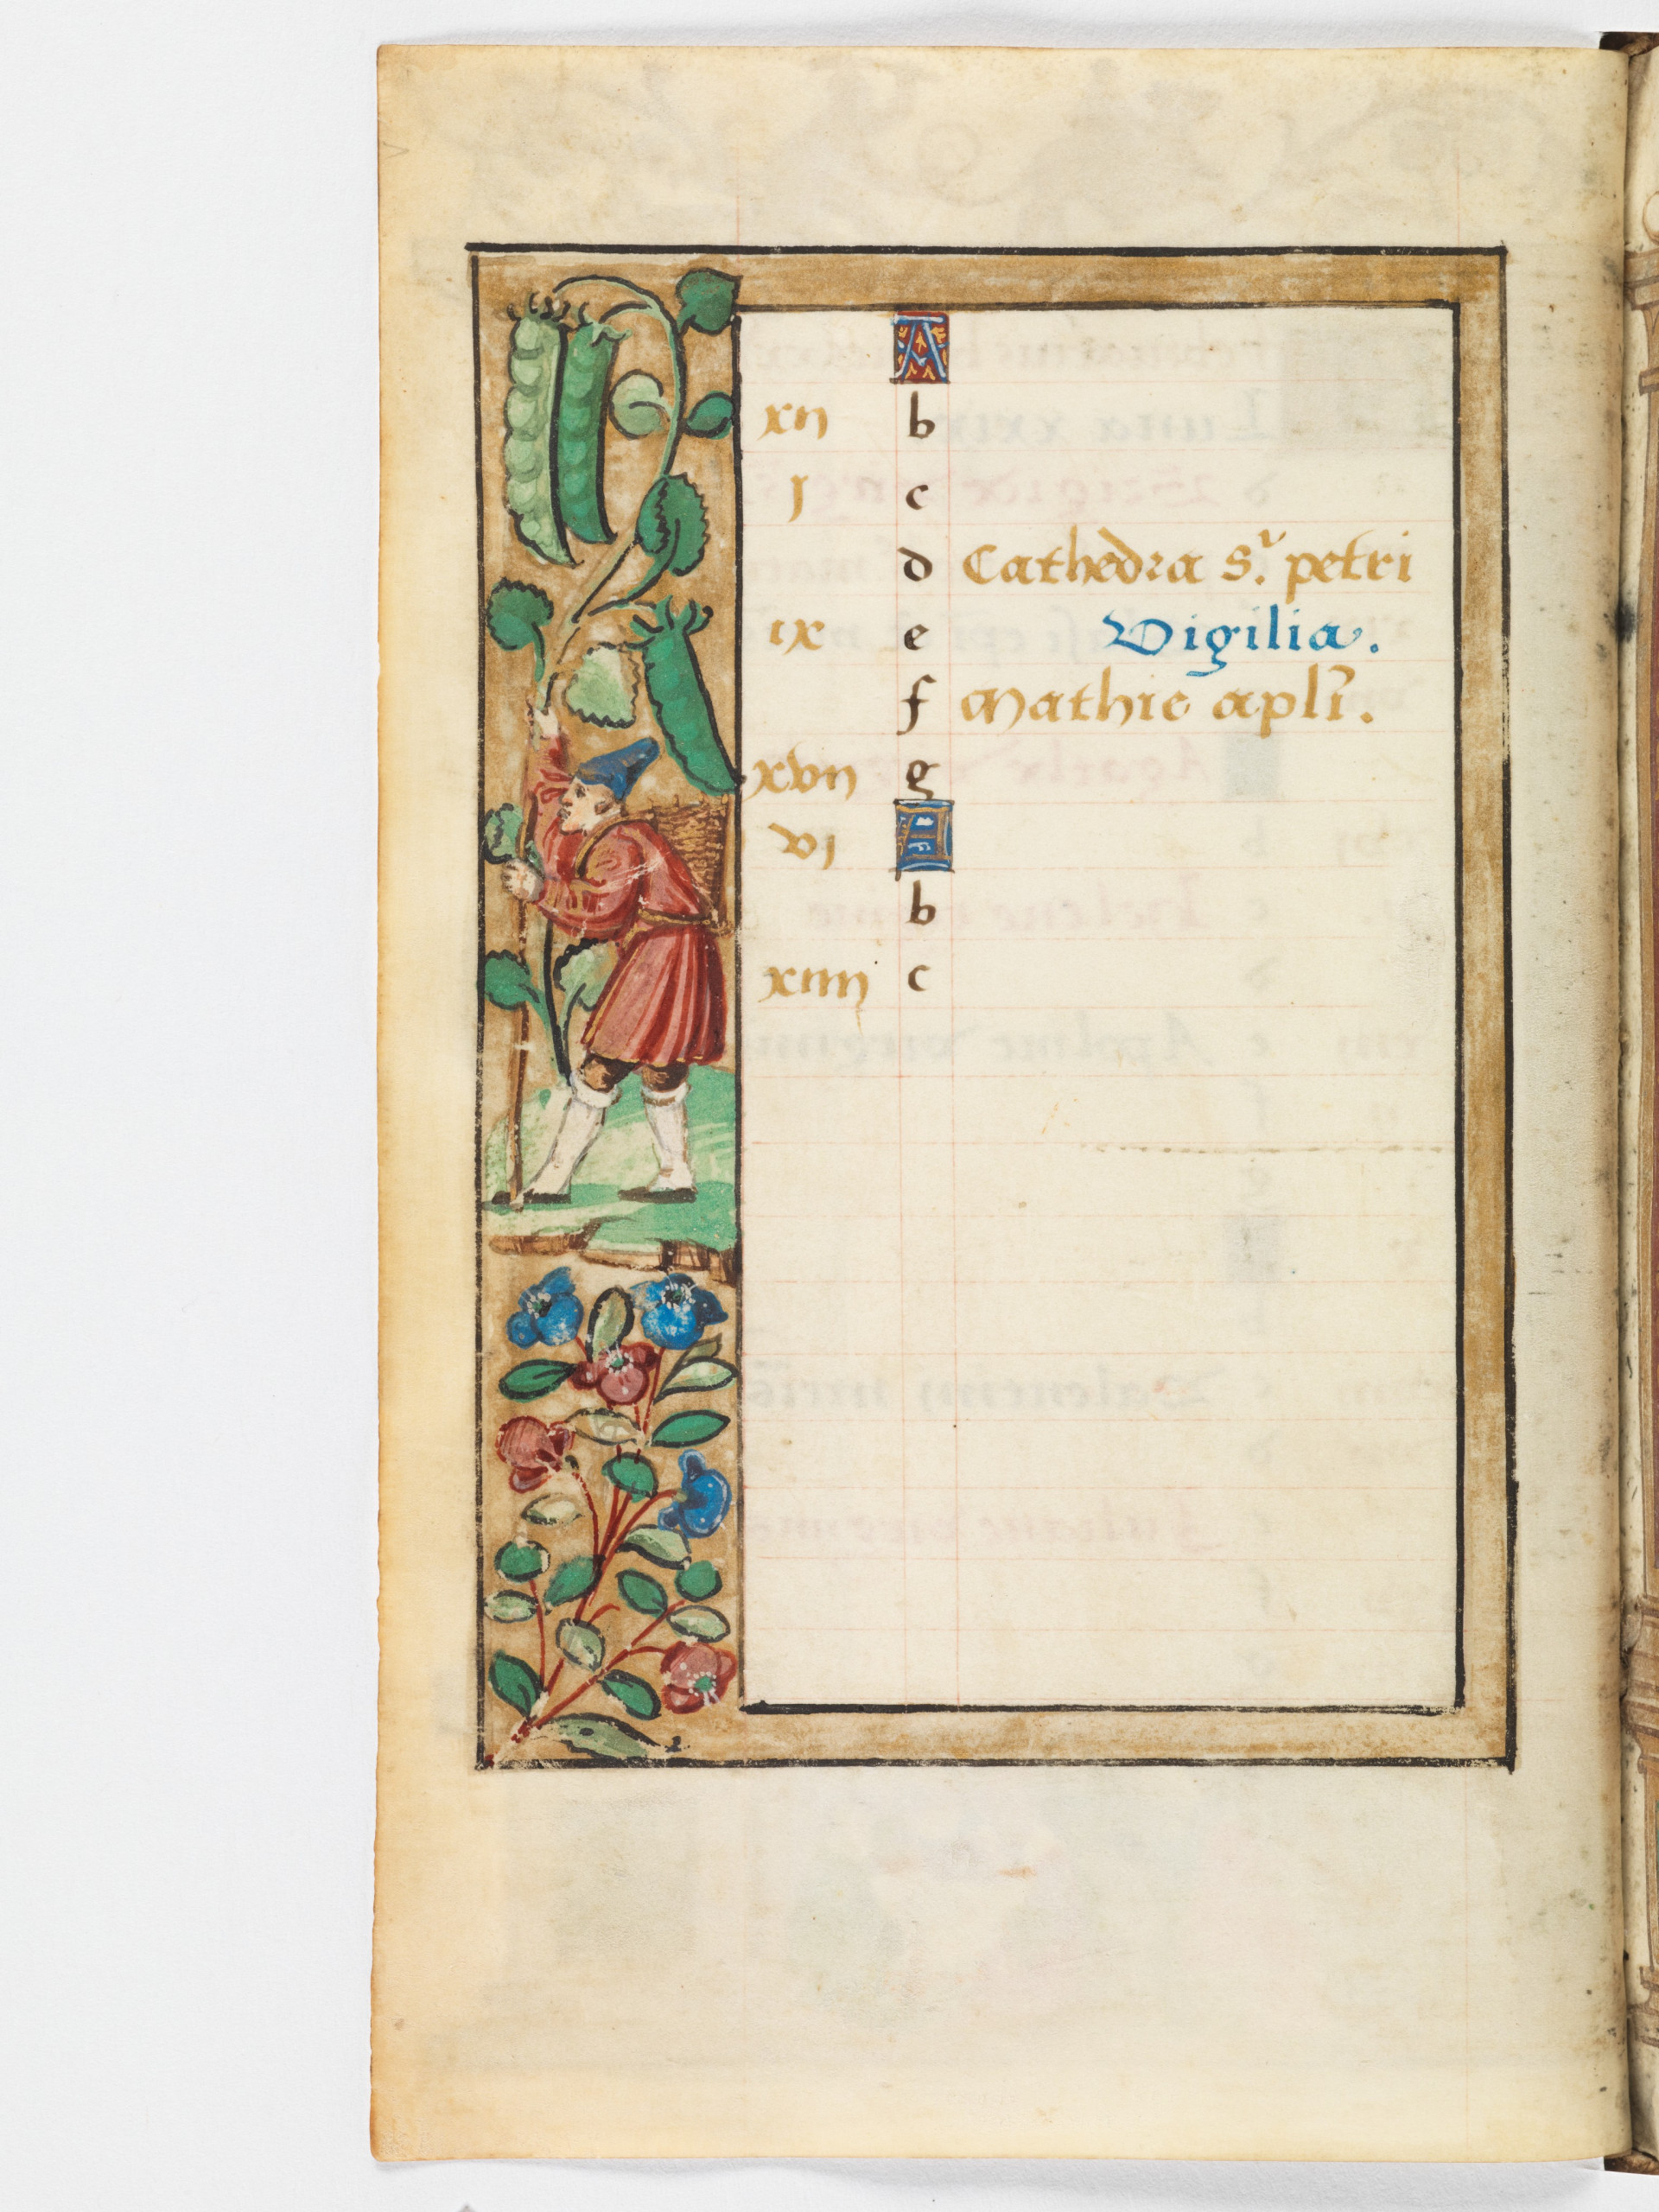 A
xii b
j c
d Cathedra s. petri
ix e Vigilia.
f Mathie apli.
xvii g
vj A
b
xiiij c